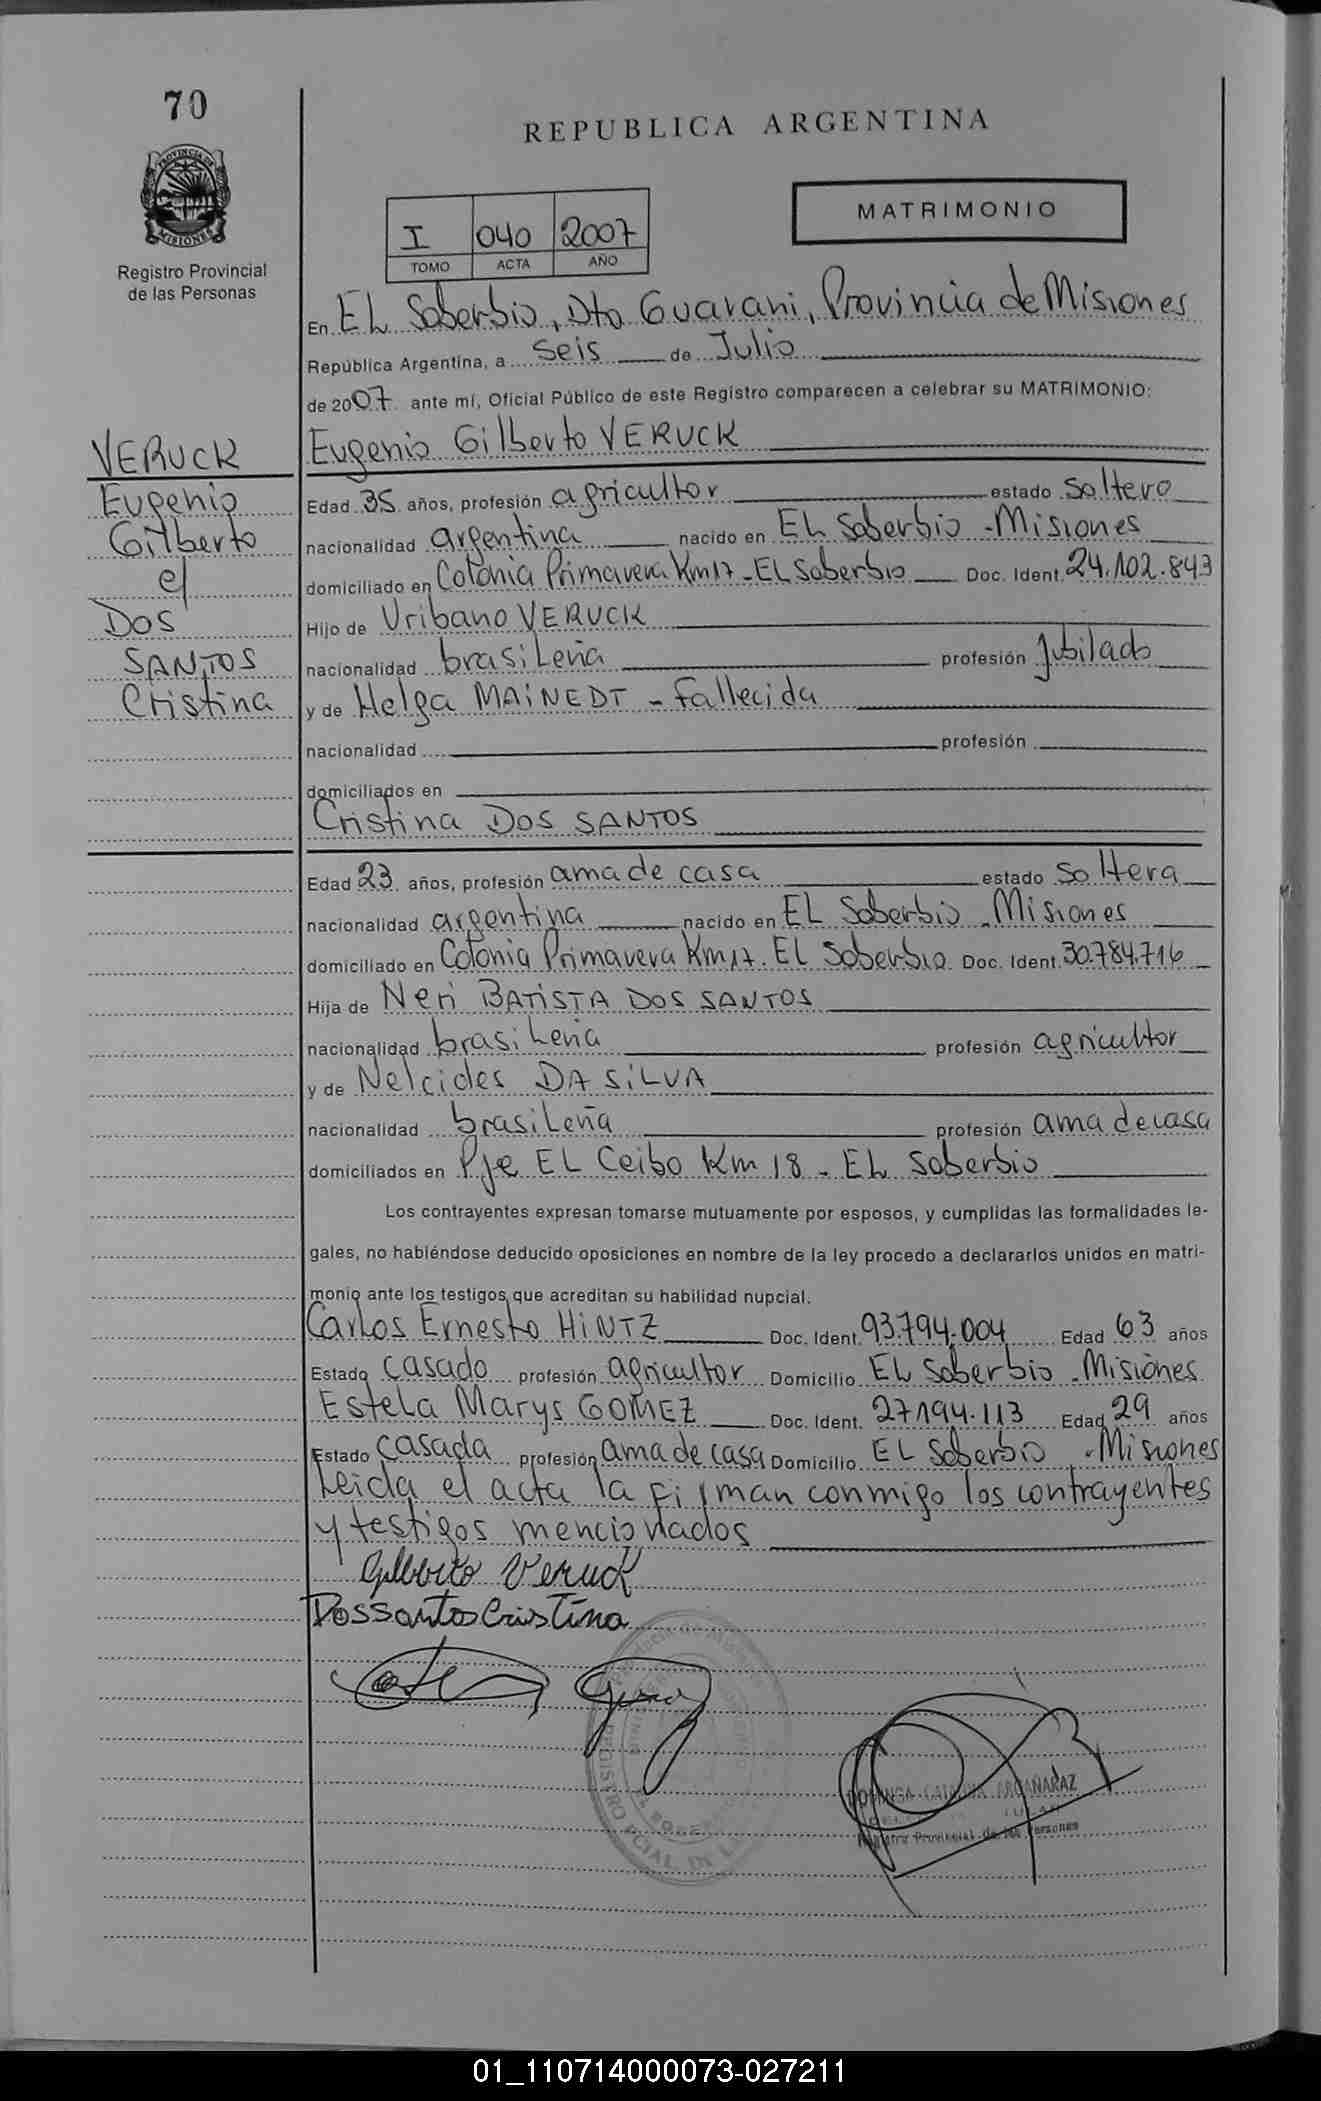 70
REPUBLICA ARGENTINA
PROVINCIA DE
MISIONES
Registro Provincial
de las Personas
I 040 2007
TOMO ACTA AÑO
MATRIMONIO
En EL Soberbio, Dto Guarani, Provincia de Misiones
República Argentina, a seis de Julio
de 2007 ante mí, Oficial Público de este Registro comparecen a celebrar su MATRIMONIO:
VERUCK
Eugenio
Gilberto
c/
DOS
SANTOS
Cristina
Eugenio Gilberto VERUCK
Edad 35 años, profesión agricultor estado soltero
nacionalidad argentina nacido en EL Soberbio - Misiones
domiciliado en Colonia Primavera Km 17 - EL Soberbio Doc. Ident. 24.102.843
Hijo de Uribano VERUCK
nacionalidad brasileña profesión Jubilado
y de Helga MAINEDT - Fallecida
nacionalidad profesión
domiciliados en
Cristina DOS SANTOS
Edad 23 años, profesión ama de casa estado soltera
nacionalidad argentina nacido en EL Soberbio - Misiones
domiciliado en Colonia Primavera Km 17. EL Soberbio Doc. Ident. 30.784.716
Hija de Neri BATISTA DOS SANTOS
nacionalidad brasileña profesión agricultor
y de Nelcides DA SILVA
nacionalidad brasileña profesión ama de casa
domiciliados en Pje EL Ceibo Km 18 - EL Soberbio
Los contrayentes expresan tomarse mutuamente por esposos, y cumplidas las formalidades le-
gales, no habiéndose deducido oposiciones en nombre de la ley procedo a declararlos unidos en matri-
monio ante los testigos que acreditan su habilidad nupcial.
Carlos Ernesto HINTZ Doc. Ident. 93.794.004 Edad 63 años
Estado casado profesión agricultor Domicilio EL Soberbio - Misiones
Estela Marys GOMEZ Doc. Ident. 27.194.113 Edad 29 años
Estado casada profesión ama de casa Domicilio EL Soberbio - Misiones
Leida el acta la firman conmigo los contrayentes
y testigos mencionados
Gilberto Veruck
Dos Santos Cristina
DOMINGA CATALINA ARGAÑARAZ
Registro Provincial de las Personas
01_110714000073-027211